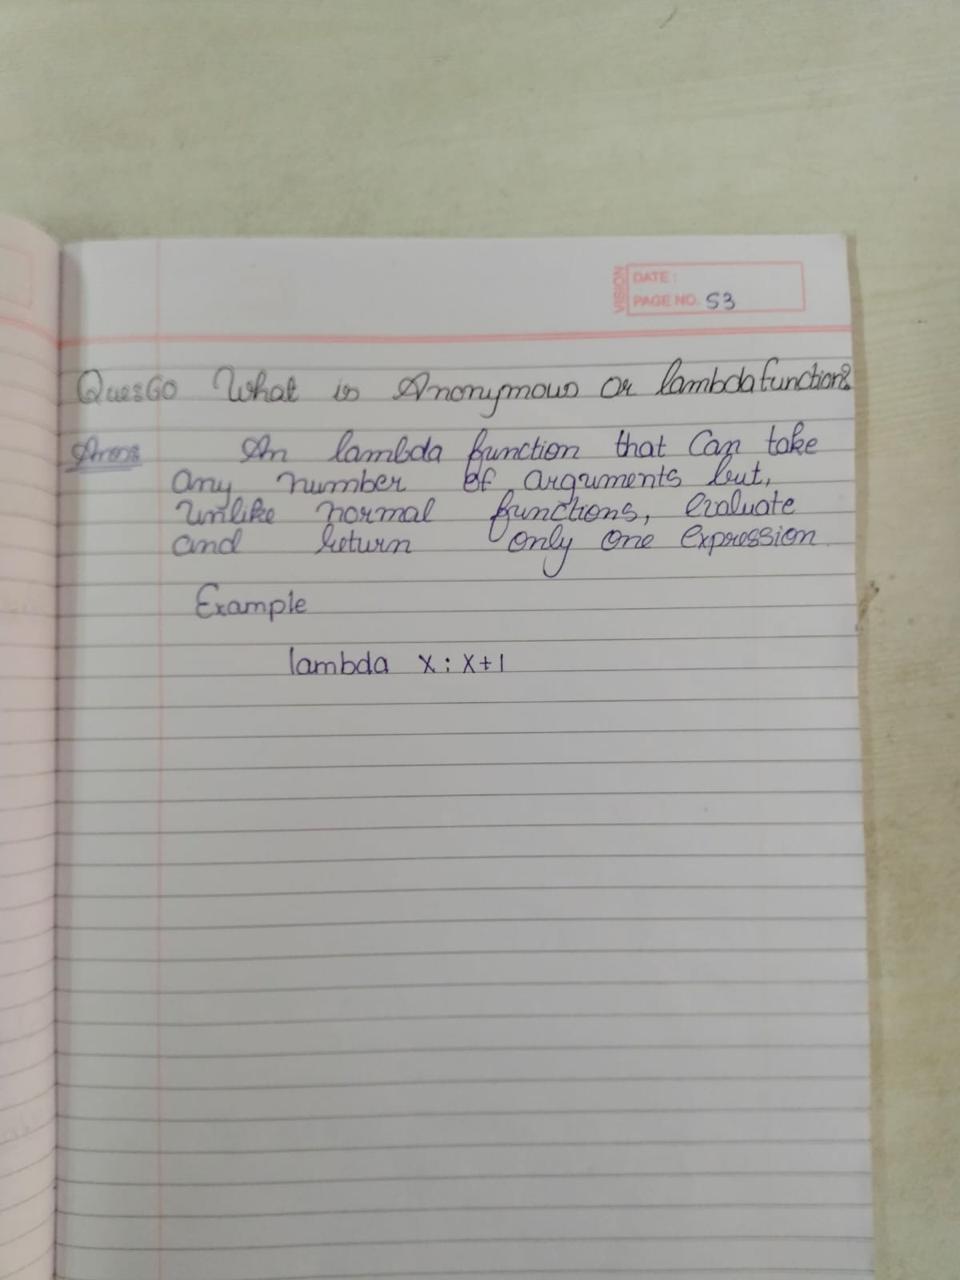 VISION
DATE :
PAGE NO. 53
Ques60 What is Anonymous or lambda function?
Ans:- An lambda function that can take
any number of arguments but,
unlike normal functions, evaluate
and return only one expression
Example
lambda x : x+1